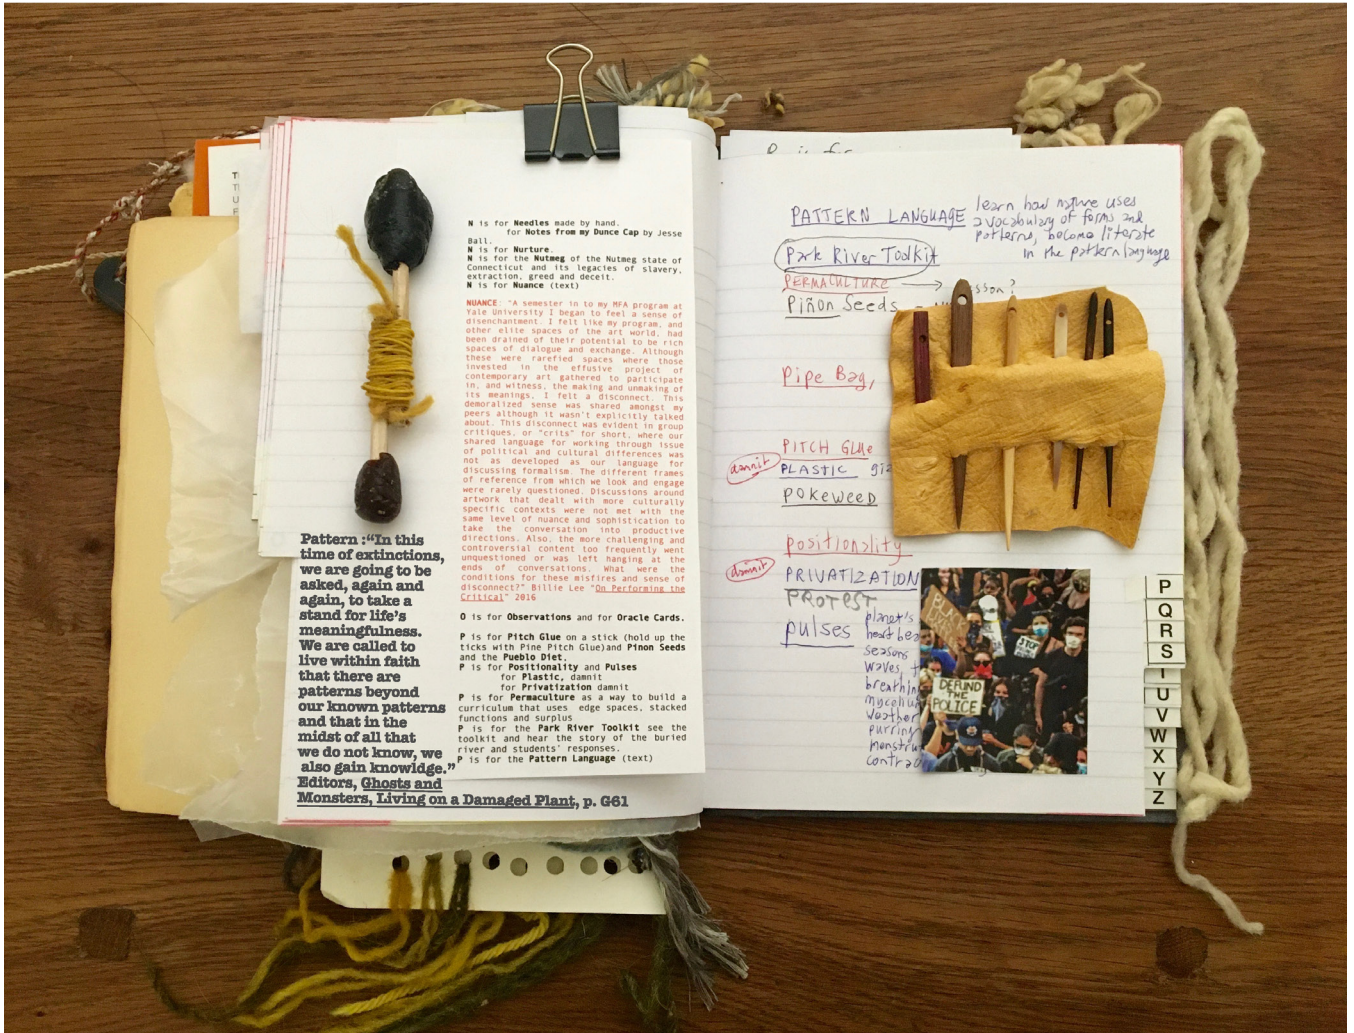 N is for Needles made by hand.
for Notes from my Dunce Cap by Jesse
Ball.
N is for Nurture.
N is for the Nutmeg of the Nutmeg state of
Connecticut and its legacies of slavery,
extraction, greed and deceit.
N is for Nuance (text)
NUANCE: "A semester in to my MFA program at
Yale University I began to feel a sense of
disenchantment. I felt like my program, and
other elite spaces of the art world, had
been drained of their potential to be rich
spaces of dialogue and exchange. Although
these were rarefied spaces where those
invested in the effusive project of
contemporary art gathered to participate
in, and witness, the making and unmaking of
its meanings, I felt a disconnect. This
demoralized sense was shared amongst my
peers although it wasn't explicitly talked
about. This disconnect was evident in group
critiques, or "crits" for short, where our
shared language for working through issue
of political and cultural differences was
not as developed as our language for
discussing formalism. The different frames
of reference from which we look and engage
were rarely questioned. Discussions around
artwork that dealt with more culturally
specific contexts were not met with the
same level of nuance and sophistication to
take the conversation into productive
directions. Also, the more challenging and
controversial content too frequently went
unquestioned or was left hanging at the
ends of conversations. What were the
conditions for these misfires and sense of
disconnect?" Billie Lee "On Performing the
Critical" 2016
O is for Observations and for Oracle Cards.
P is for Pitch Glue on a stick (hold up the
ticks with Pine Pitch Glue)and Pinon Seeds
and the Pueblo Diet,
P is for Positionality and Pulses
for Plastic, damnit
for Privatization damnit
P is for Permaculture as a way to build a
curriculum that uses edge spaces, stacked
functions and surplus
P is for the Park River Toolkit see the
toolkit and hear the story of the buried
river and students' responses.
P is for the Pattern Language (text)
Pattern :"In this
time of extinctions,
we are going to be
asked, again and
again, to take a
stand for life's
meaningfulness.
We are called to
live within faith
that there are
patterns beyond
our known patterns
and that in the
midst of all that
we do not know, we
also gain knowldge."
Editors, Ghosts and
Monsters, Living on a Damaged Plant, p. G61
PATTERN LANGUAGE
learn how nature uses
a vocabulary of forms and
patterns, become literate
in the pattern language
Park River Toolkit
PERMACULTURE
Piñon Seeds
Pipe Bag,
PITCH GLUe
damnit
PLASTIC
POKEWEED
positionality
damnit
PRIVATIZATION
PROTEST
pulses
planet's
seasons
DEFUND
THE
POLICE
P
Q
R
S
U
V
W
X
Y
Z